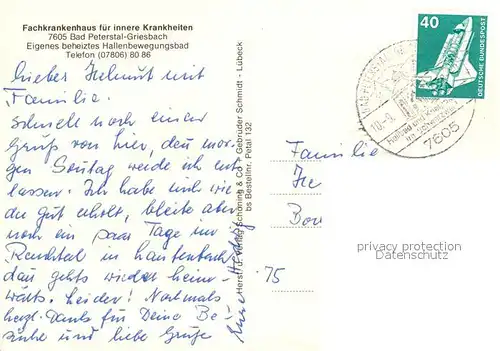 Fachkrankenhaus für innere Krankheiten
7605 Bad Peterstal-Griesbach
Eigenes beheiztes Hallenbewegungsbad
Telefon (07806) 80 86
Lieber Helmut mit
Familie.
Schnell noch einen
Gruß von hier, den mor-
gen Sonntag werde ich ent-
lassen. Ich habe mich wie-
der gut erholt, bleibe aber
noch ein paar Tage im
Renchtal in Lautenbach
dann gehts wieder heim-
wärts. Leider! Nochmals
herzl. Dank für Deine Be-
suche und liebe Grüße
Eure Hedwig
Herst. u. Verlag Schöning & Co + Gebrüder Schmidt - Lübeck
bs Bestellnr. Petal 132
40
DEUTSCHE BUNDESPOST
7605
Familie
75
privacy protection
Datenschutz